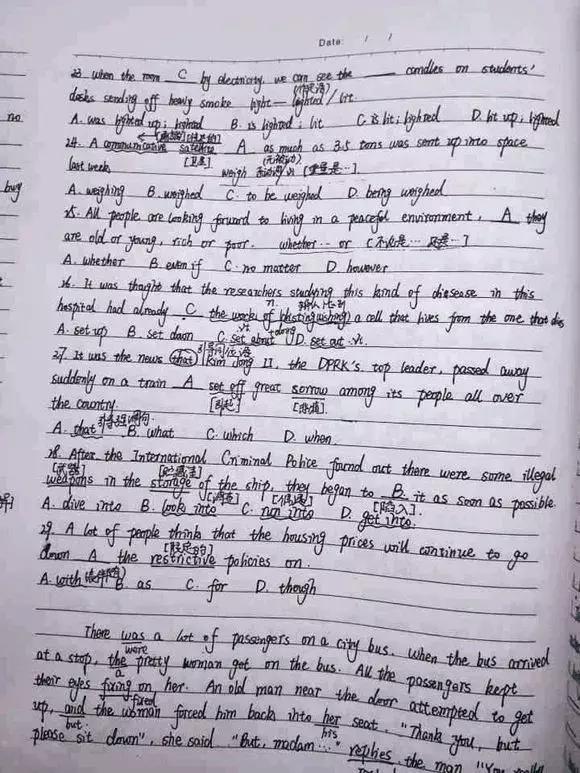 Date: / /
23. when the room C by electricity, we can see the ___ candles on students'
desks sending off heavy smoke light — lighted / lit
A. was lighted up; lighted B. is lighted; lit C. is lit; lighted D. lit up; lighted
24. A communicative satellite A as much as 3.5 tons was sent up into space
[卫星]
last week. weigh [重量是…]
A. weighing B. weighed C. to be weighed D. being weighed
25. All people are looking forward to living in a peaceful environment, A they
are old or young, rich or poor. whether … or [不论是… 还是…]
A. whether B. even if C. no matter D. however
26. It was thought that the researchers studying this kind of disease in this
hospital had already C the work of (distinguishing) a cell that lives from the one that dies
A. set up B. set down C. set about D. set out
vt. +doing vt.
27. It was the news (that) Kim Jong Il, the DPRK's top leader, passed away
suddenly on a train A set off great sorrow among its people all over
the country. [引起] [悲痛]
引导强调句
A. that B. what C. which D. when
28. After the International Criminal Police found out there were some illegal
[武器]
weapons in the storage of the ship, they began to B it as soon as possible.
[调查] [陷入]
A. dive into B. look into C. run into D. get into
29. A lot of people think that the housing prices will continue to go
down A the restrictive policies on.
A. with B. as C. for D. though
There was a lot of passengers on a city bus. When the bus arrived
were
at a stop, the pretty woman got on the bus. All the passengers kept
a
their eyes fixing on her. An old man near the door attempted to get
fixed
up, and the woman forced him back into her seat. "Thank you, but
but his
please sit down", she said "But, madam …" replies the man "You